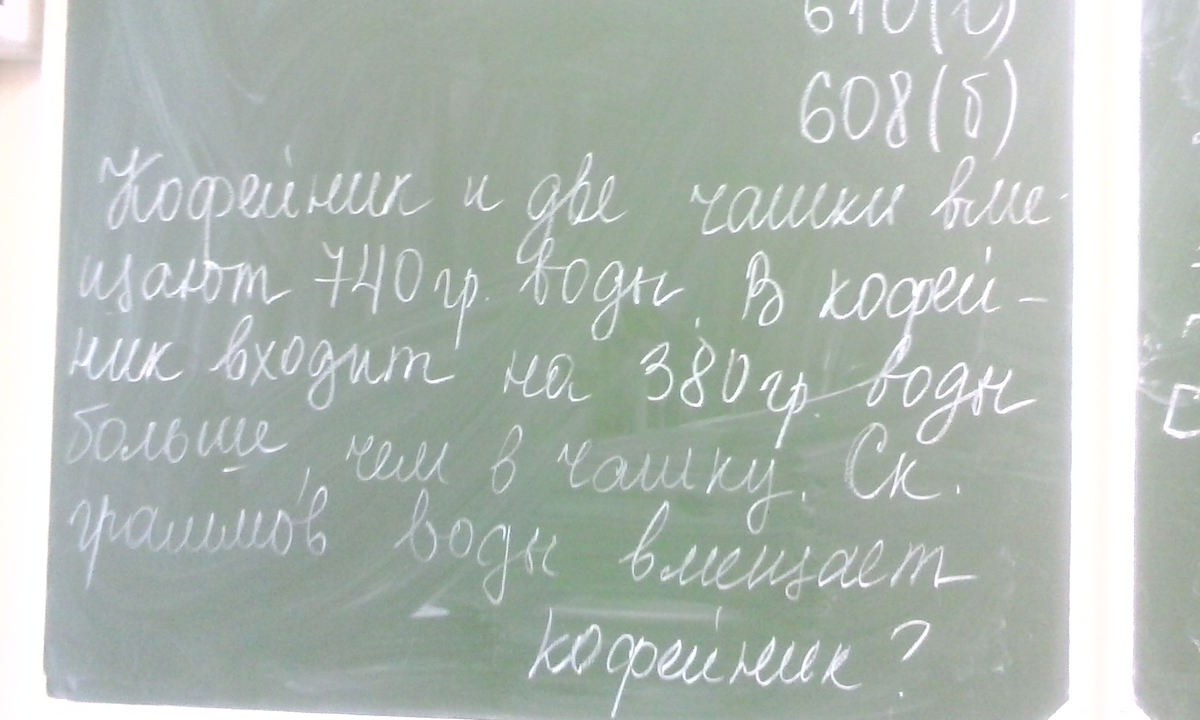 610(г)
608(б)
Кофейник и две чашки вме-
щают 740 гр. воды. В кофей-
ник входит на 380 гр. воды
больше, чем в чашку. Ск.
граммов воды вмещает
кофейник?